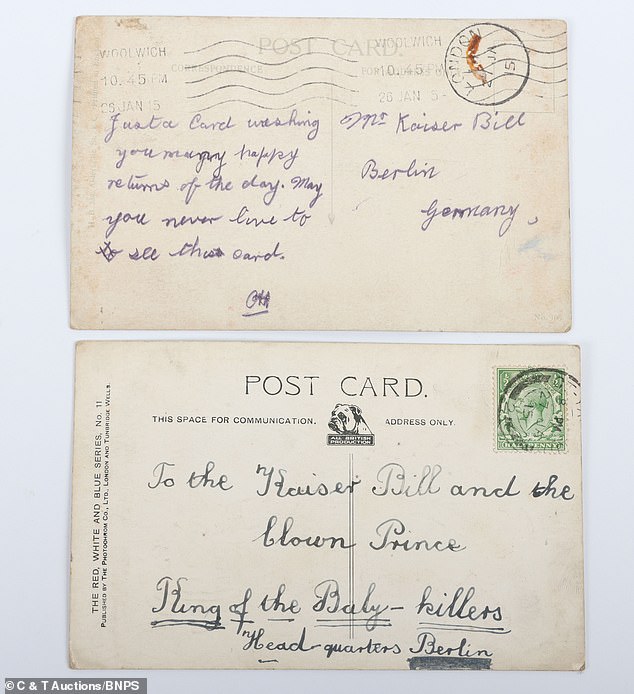 POST CARD.
CORRESPONDENCE
WOOLWICH
10.45 PM
26 JAN 15
WOOLWICH
10.45 PM
26 JAN 5
LONDON
15
Just a Card weshing
you many happy
returns of the day. May
you never live to
see this card.
Mr Kaiser Bill
Berlin
Germany,
POST CARD.
THIS SPACE FOR COMMUNICATION.
ADDRESS ONLY.
ALL BRITISH
PRODUCTION
THE RED, WHITE AND BLUE SERIES, No. 11
PUBLISHED BY THE PHOTOCHROM CO., LTD., LONDON AND TUNBRIDGE WELLS.
To the Kaiser Bill and the
Clown Prince
King of the Baby-killers
Head-quarters Berlin
© C & T Auctions/BNPS